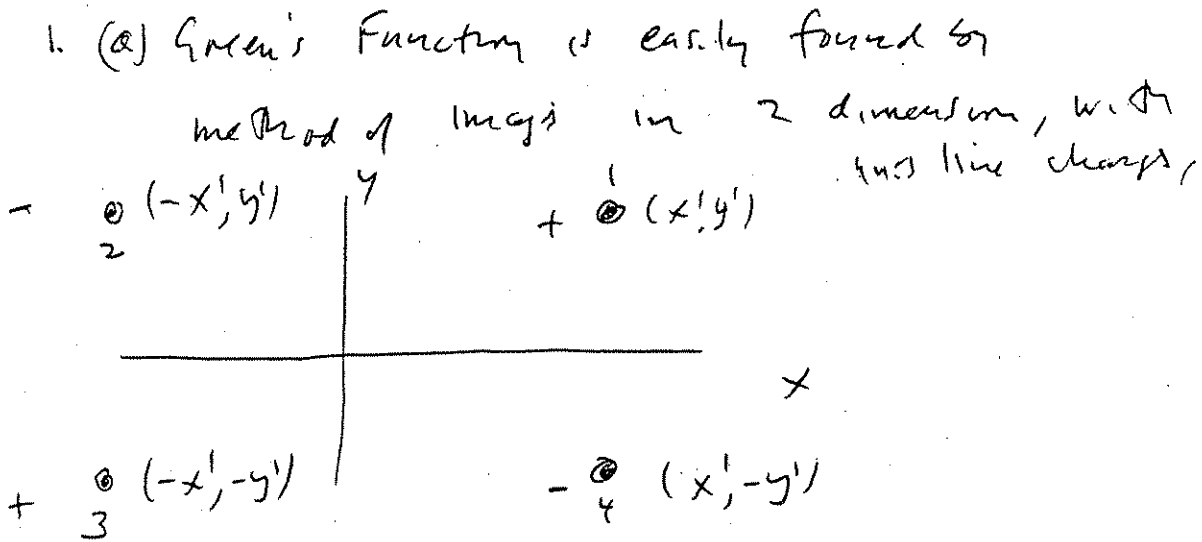 1. (a) Green's Function is easily found by
method of images in 2 dimension, with
line charges,
y
- (-x', y') 2
+ 1 (x', y')
x
+ (-x', -y') 3
- 4 (x', -y')